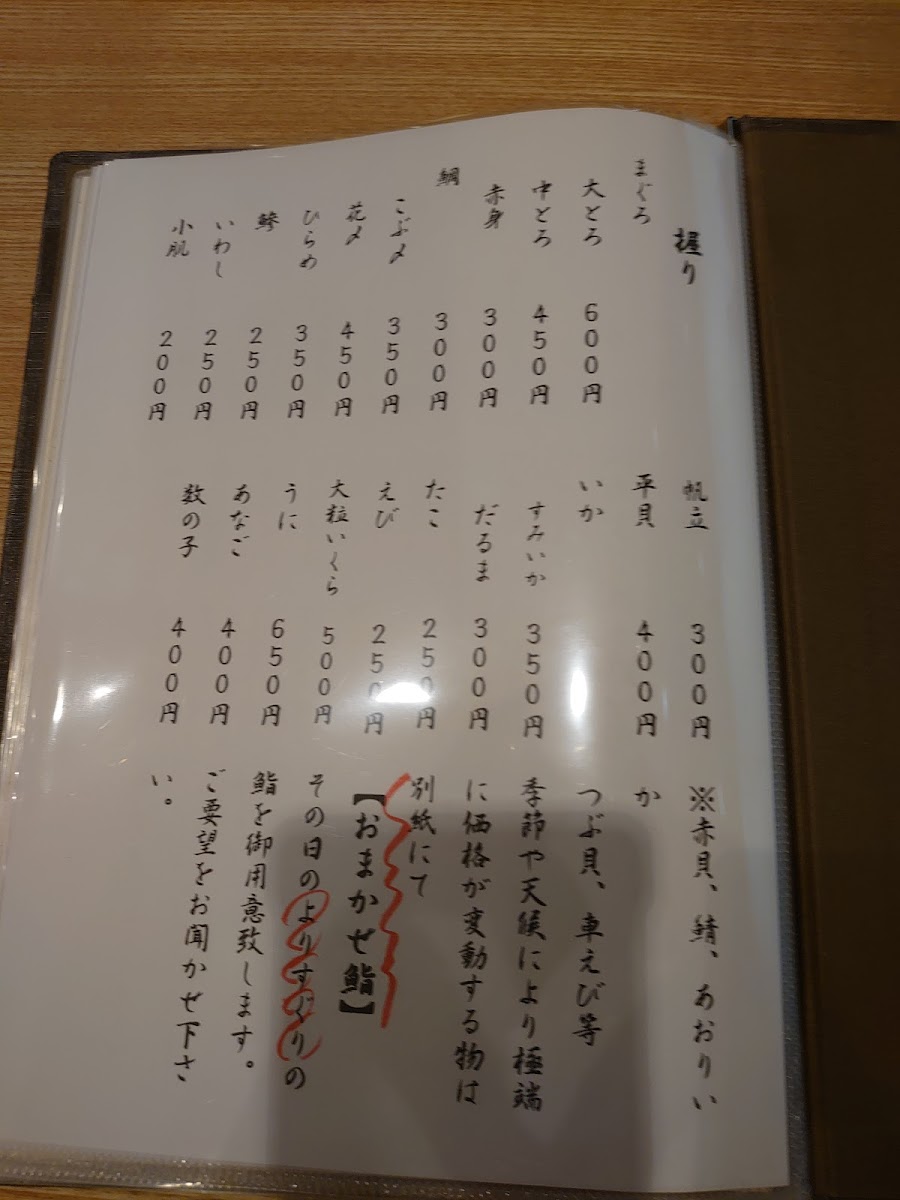 握り
まぐろ
大とろ 600円
中とろ 450円
赤身 300円
鯛 300円
こぶ〆 350円
花〆 450円
ひらめ 350円
鯵 250円
いわし 250円
小肌 200円
帆立 300円
平貝 400円
いか
すみいか 350円
だるま 300円
たこ 250円
えび 250円
大粒いくら 500円
うに 650円
あなご 400円
数の子 400円
※赤貝、鯖、あおりい
か
つぶ貝、車えび等
季節や天候により極端
に価格が変動する物は
別紙にて
【おまかせ鮨】
その日のよりすぐりの
鮨を御用意致します。
ご要望をお聞かせ下さ
い。